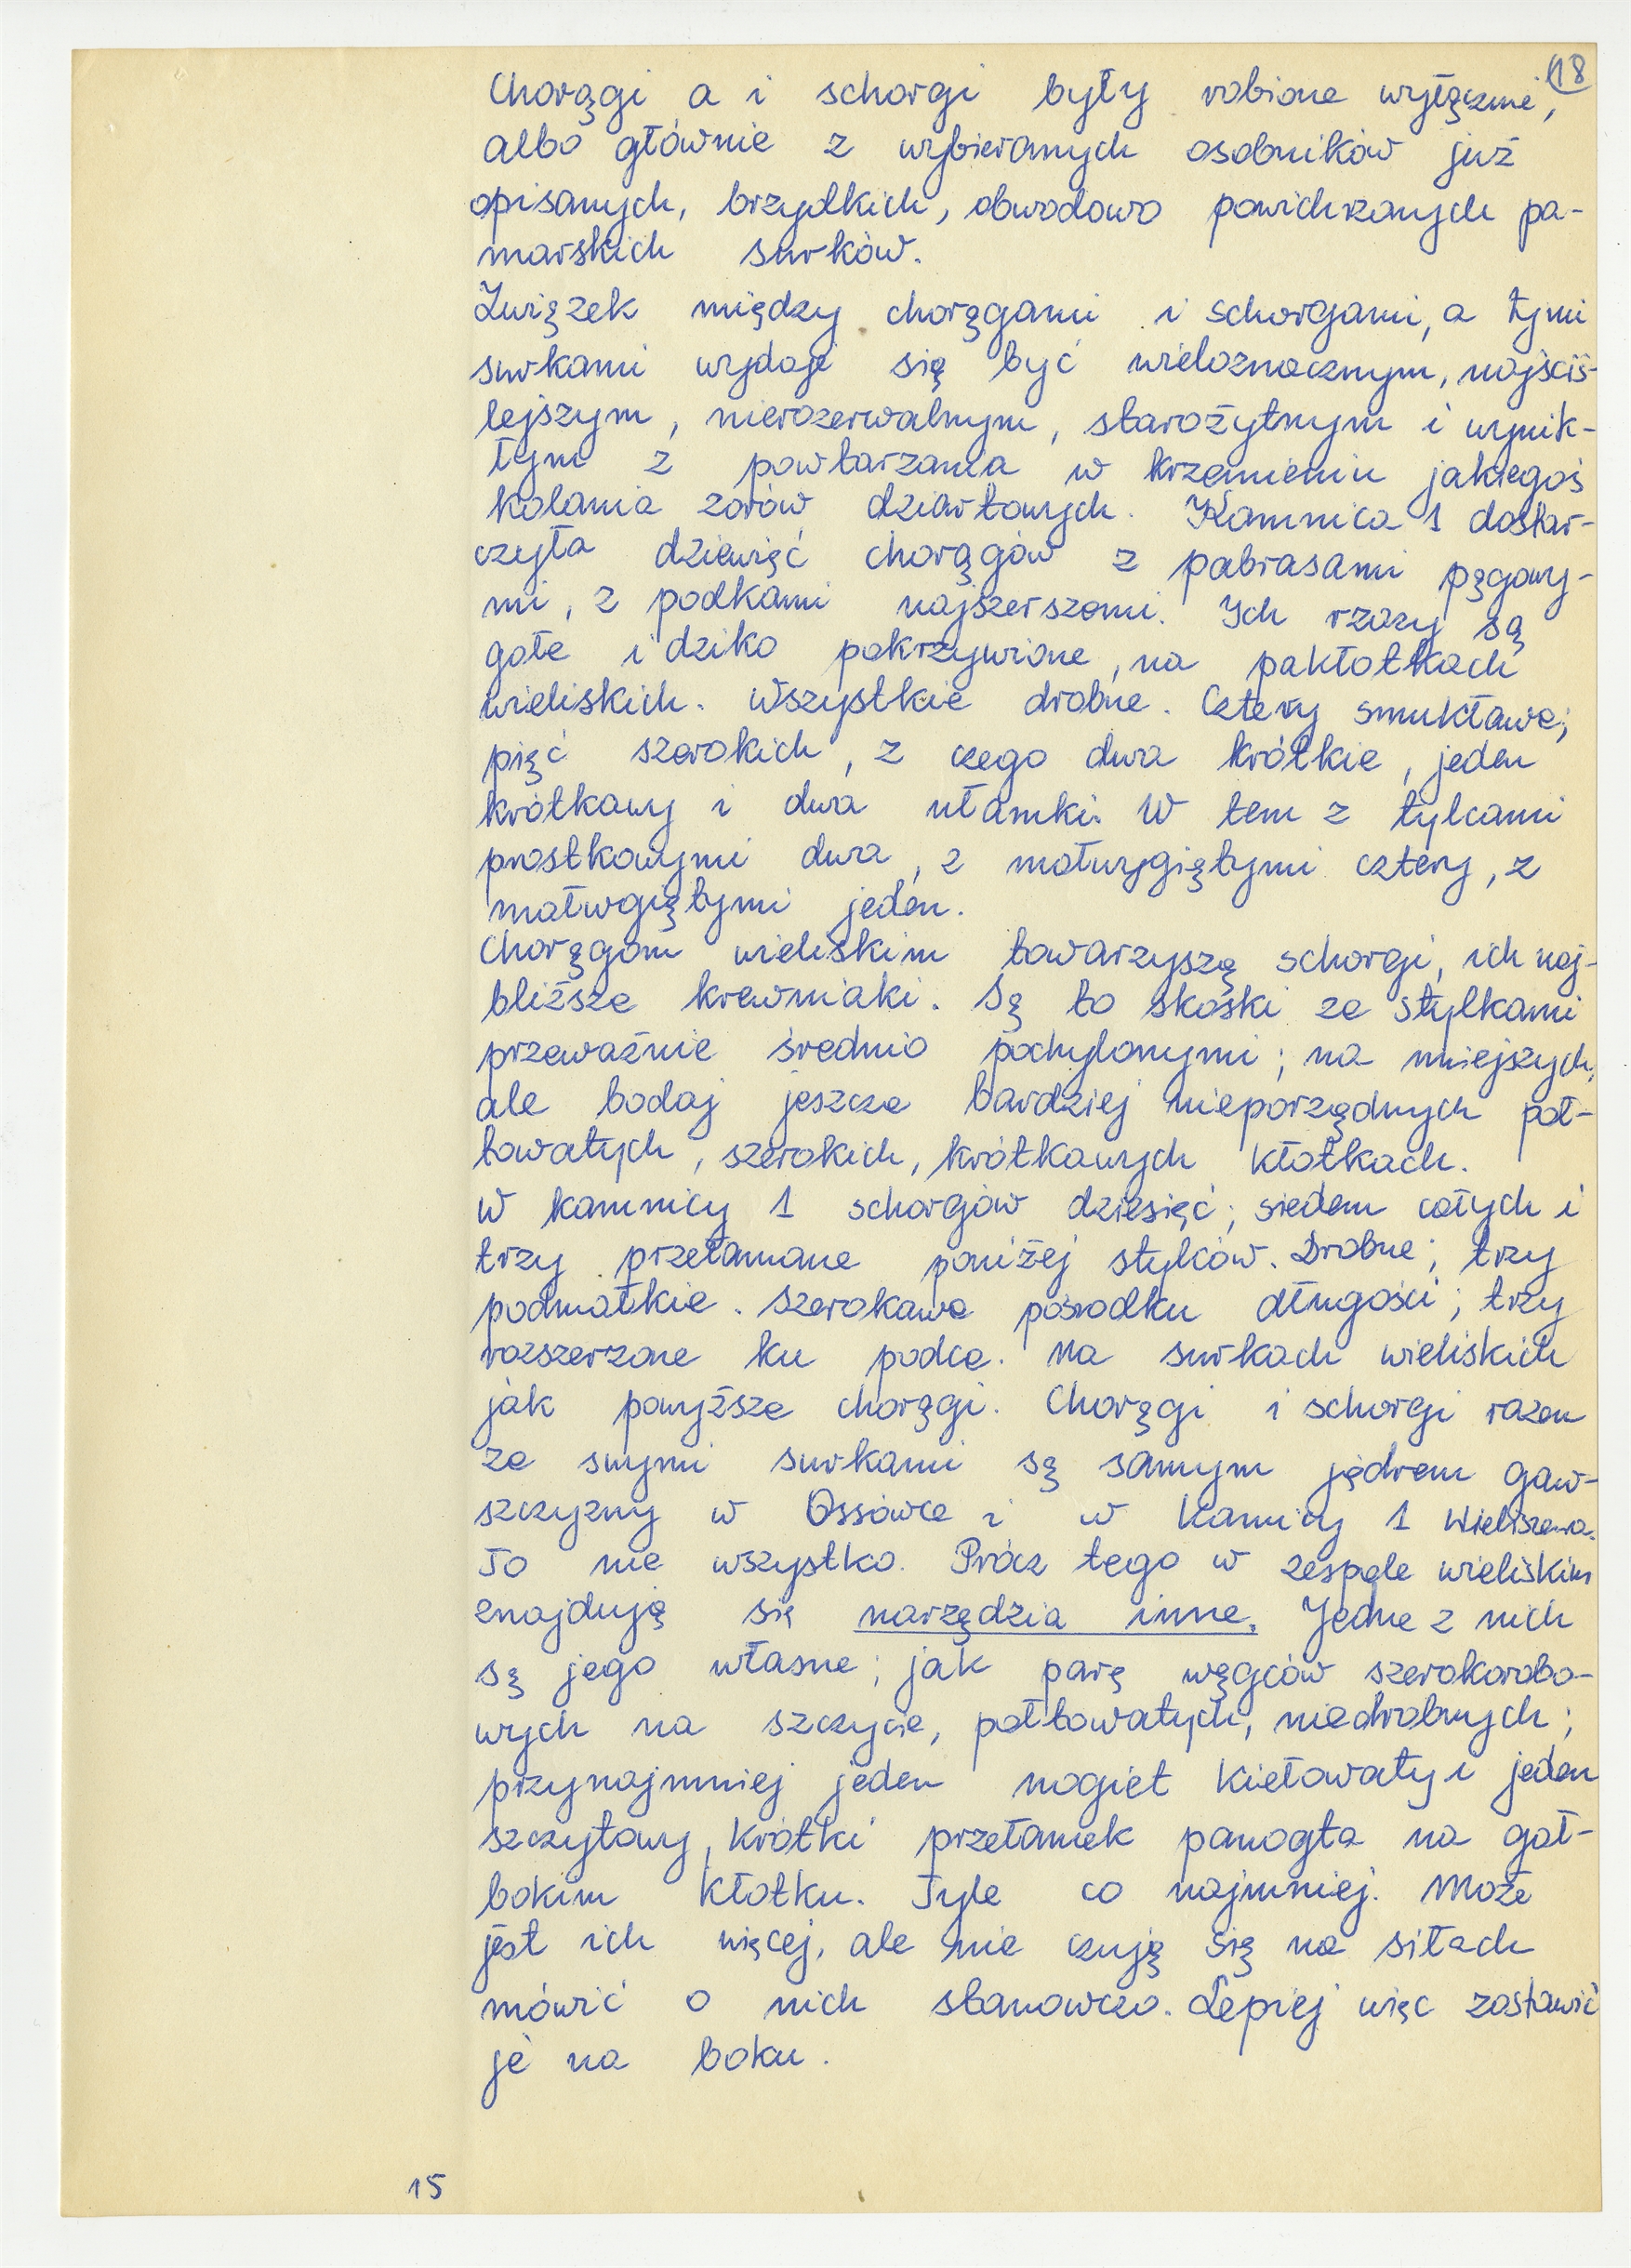 18
Chorągi a i schorgi były robione wyłącznie,
albo głównie z wybieranych osobników już
opisanych, brzydkich, obwodowo powichrzanych pa-
marskich surków.
Związek między chorągami i schorgami, a tymi
surkami wydaje się być wieloznacznym, najściś-
lejszym, nierozerwalnym, starożytnym i wynik-
łym z powtarzania w krzemieniu jakiegoś
kolania zorów dziartowych. Kamnica 1 dostar-
czyła dziewięć chorągów z pabrasami pęgowy-
mi, z podkami najszerszemi. Ich rzazy są
gołe i dziko pokrzywione, na pakłotkach
wieliskich. Wszystkie drobne. Cztery smukławe;
pięć szerokich, z czego dwa krótkie, jeden
krótkawy i dwa ułamki. W tem z tylcami
prostkowymi dwa, z małwygiętymi cztery, z
małwgiętymi jeden.
Chorągom wieliskim towarzyszą schorgi, ich naj-
bliższe krewniaki. Są to skośki ze stylkami
przeważnie średnio pochylonymi; na mniejszych,
ale bodaj jeszcze bardziej nieporządnych poł-
towatych, szerokich, krótkawych kłotkach.
W kamnicy 1 schorgów dziesięć; siedem całych i
trzy przełamane poniżej stylców. Drobne; trzy
podmałkie. Szerokawe pośrodku długości; trzy
rozszerzone ku podce. Na surkach wieliskich
jak powyższe chorągi. Chorągi i schorgi razem
ze swymi surkami są samym jądrem gaw-
szczyzny w Ossówce i w Kamnicy 1 Wieliszewa.
To nie wszystko. Prócz tego w zespole wieliskim
znajdują się narzędzia inne. Jedne z nich
są jego własne; jak parę węgców szerokorobo-
wych na szczycie, połtowatych, niedrobnych;
przynajmniej jeden nogiet kiełowaty i jeden
szczytowy, krótki przełamek panogta na goł-
bokim kłotku. Tyle co najmniej. Może
jest ich więcej, ale nie czuję się na siłach
mówić o nich stanowczo. Lepiej więc zostawić
je na boku.
15